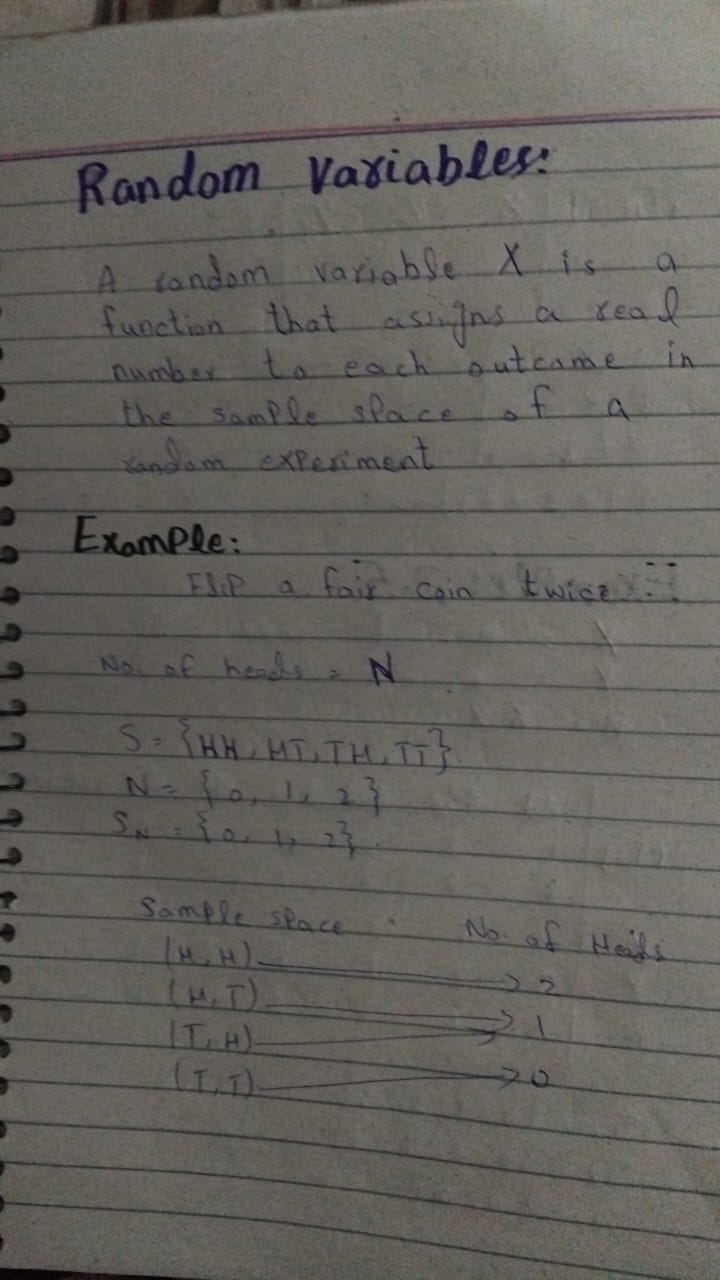 Random Variables:
A random variable X is a
function that assigns a real
number to each outcome in
the sample space of a
random experiment
Example:
Flip a fair coin twice
No. of heads = N
S = {HH, HT, TH, TT}
N = {0, 1, 2}
S_N = {0, 1, 2}
Sample space No. of Heads
(H, H) → 2
(H, T) → 1
(T, H)
(T, T) → 0